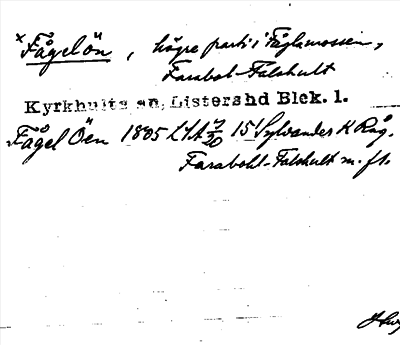 x Fågelön, högre parti i Fåglamossen,
Farabol-Falshult
Kyrkhults sn, Listershd Blek. l.
Fågel Öen 1805 LSA 7/20 15 Sylvander K Råg.
Farabohl-Falshult m. fl.